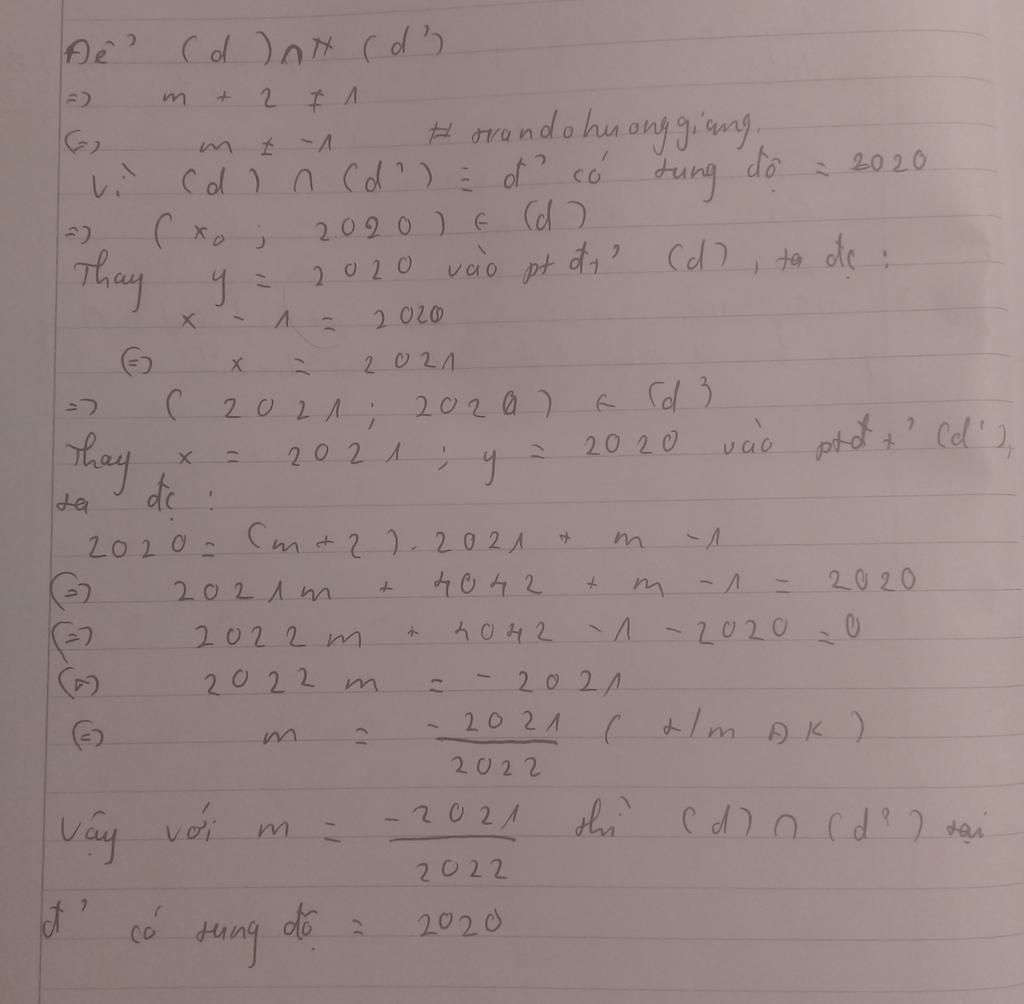 Để (d) ∩ (d')
=> m + 2 ≠ 1
(=) m ≠ -1 # orandohuonggiang.
Vì (d) ∩ (d') = đ' có tung độ = 2020
=> (x₀ ; 2020) ∈ (d)
Thay y = 2020 vào pt đt' (d), ta đc :
x - 1 = 2020
(=) x = 2021
=> ( 2021 ; 2020 ) ∈ (d')
Thay x = 2021 ; y = 2020 vào ptđt' (d'),
ta đc :
2020 = (m + 2). 2021 + m - 1
(=) 2021m + 4042 + m - 1 = 2020
(=) 2022m + 4042 - 1 - 2020 = 0
(=) 2022m = - 2021
(=) m = -2021/2022 ( t/m ĐK )
Vậy với m = -2021/2022 thì (d) ∩ (d') tại
đ' có tung độ = 2020